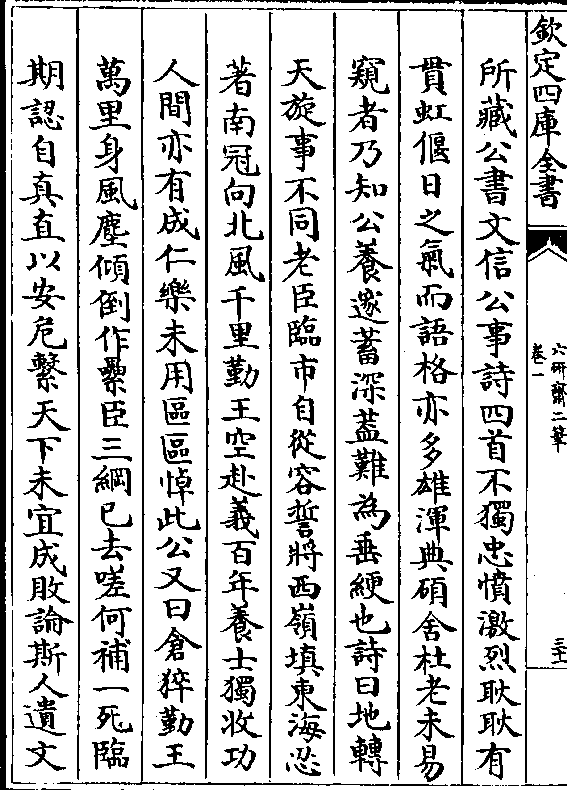 欽定四庫全書
六研齋二筆
卷一
三十
所藏公書文信公事詩四首不獨忠憤激烈耿耿有
貫虹偃日之氣而語格亦多雄渾典碩舍杜老未易
窺者乃知公養邃蓄深蓋難為垂綆也詩曰地轉
天旋事不同老臣臨市自從容誓將西嶺填東海忍
著南冠向北風千里勤王空赴義百年養士獨收功
人間亦有成仁樂未用區區悼此公又曰倉猝勤王
萬里身風塵傾倒作纍臣三綱已去嗟何補一死臨
期認自真直以安危繫天下未宜成敗論斯人遺文